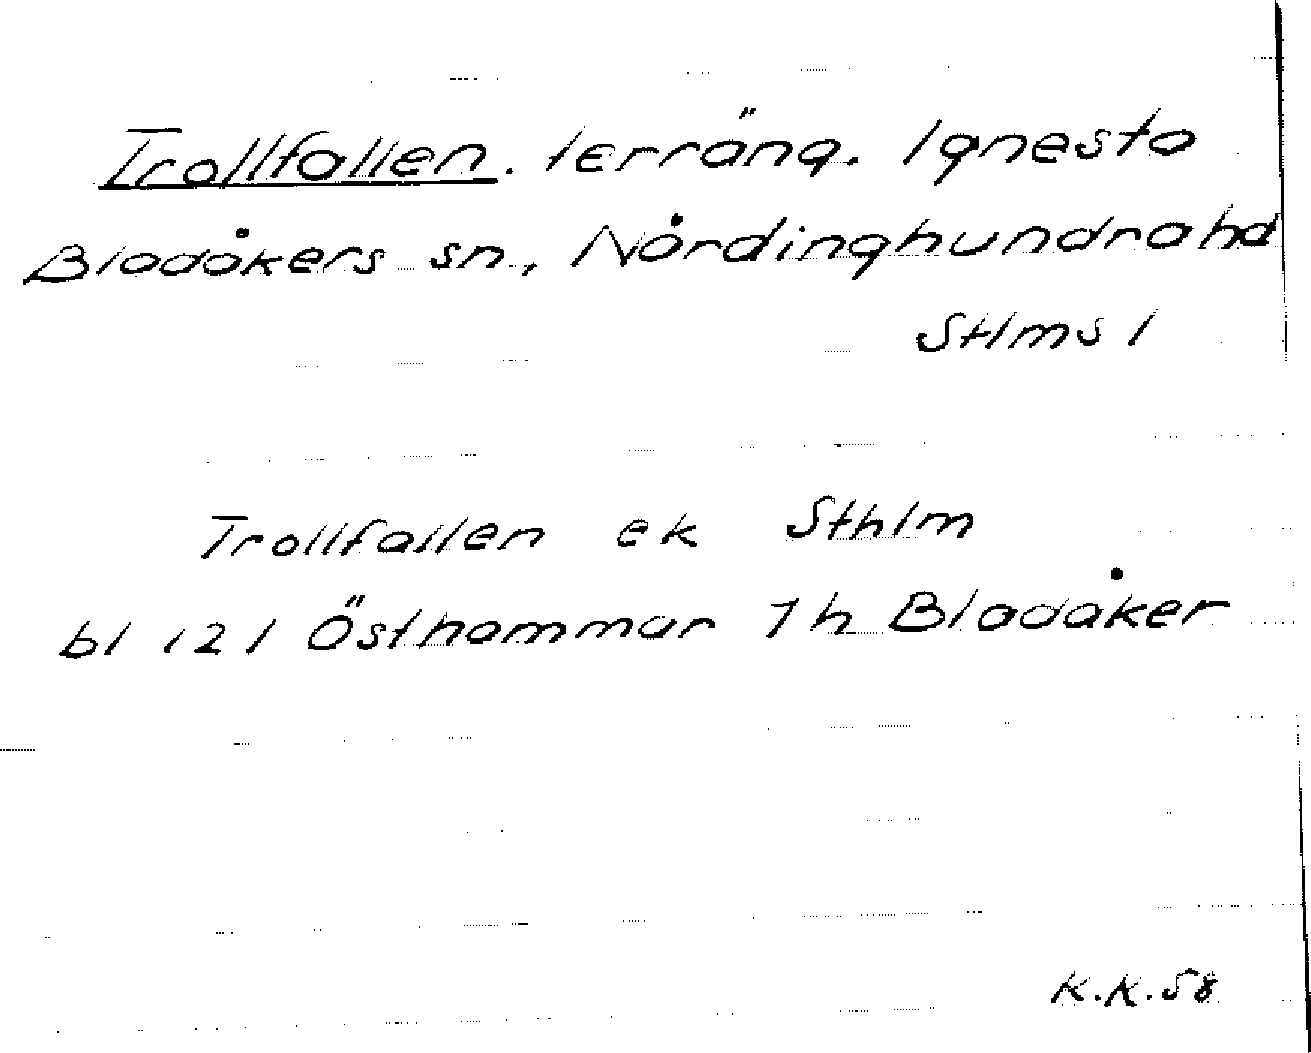 Trollfallen. terräng. Ignesta
Bladåkers sn., Närdinghundra hd
Sthms l
Trollfallen ek Sthlm
bl 121 Östhammar 7h Bladåker
K.K.58